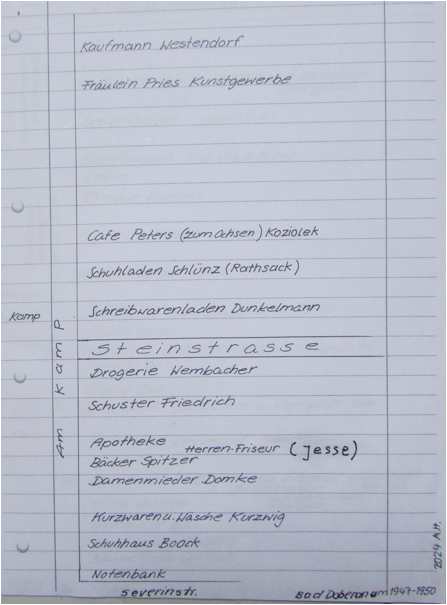 Kaufmann Westendorf
Fräulein Pries Kunstgewerbe
Cafe Peters (zum Achsen) Koziolek
Schuhladen Schlünz (Rathsack)
Schreibwarenladen Dunkelmann
Kamp
Am Kamp
Steinstrasse
Drogerie Wembacher
Schuster Friedrich
Apotheke
Herren-Friseur (Jesse)
Bäcker Spitzer
Damenmieder Domke
Kurzwaren u. Wäsche Kurzwig
Schuhhaus Boock
Notenbank
Severinstr.
Bad Doberan um 1947-1950
2024 A.H.